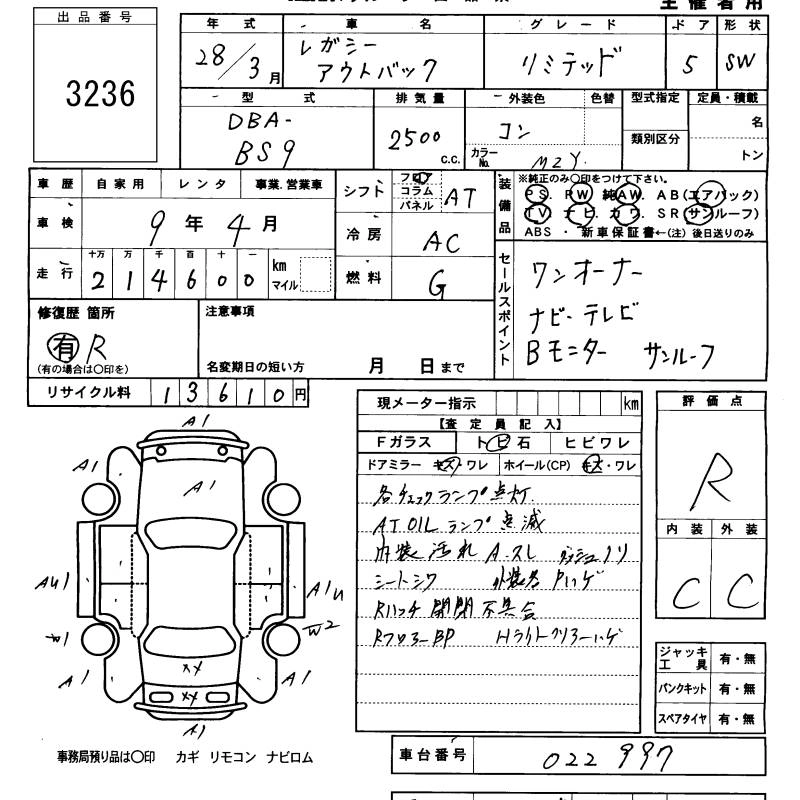 主催者用
出品番号
3236
年式 車名 グレード ドア 形状
28/3月 レガシー アウトバック リミテッド 5 SW
型式 排気量 外装色 色替 型式指定 定員・積載
DBA-
BS9
2500 c.c.
コン
カラーNo. M2Y.
類別区分
名
トン
車歴 自家用 レンタ 事業.営業車
車検 9年4月
走行 十万 万 千 百 十 一
214600 km マイル
シフト フロア コラム パネル AT
冷房 AC
燃料 G
装備品
※純正のみ○印をつけて下さい。
PS. PW 純AW. AB(エアバック)
TV ナビ. カワ. SR(サンルーフ)
ABS ・ 新車保証書←(注) 後日送りのみ
セールスポイント
ワンオーナー
ナビ・テレビ
Bモニター サンルーフ
修復歴 箇所
有 R
(有の場合は○印を)
注意事項
名変期日の短い方 月 日まで
リサイクル料 13610円
現メーター指示 km
【査定員記入】
Fガラス トビ石 ヒビワレ
ドアミラー キズ・ワレ ホイール(CP) キズ・ワレ
各チェックランプ点灯.
AT OIL ランプ点滅
内装汚れ A.スレ ダッシュノリ
シートシワ 外装各Pハゲ
Rハッチ開閉不具合
Rフロアー BP Hライトクリアーハゲ
評価点
R
内装 外装
C C
ジャッキ工具 有・無
パンクキット 有・無
スペアタイヤ 有・無
A1
A1 A1
A1
AU1 A1U
W1 W2
XY
XY
A1 A1
A1
事務局預り品は○印 カギ リモコン ナビロム
車台番号 022997